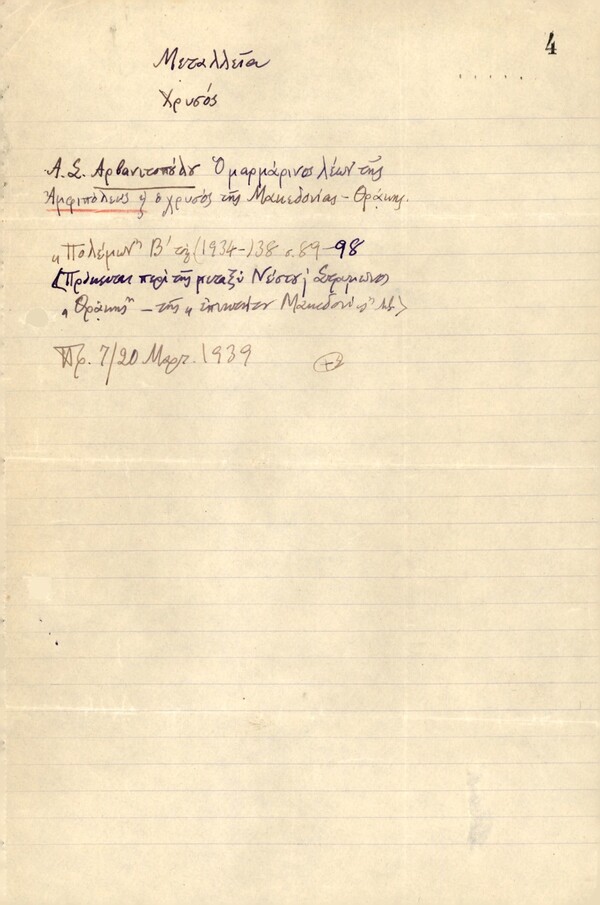 4
Μεταλλεῖα
Χρυσός
Α. Σ. Αρβανιτοπούλου Ὁ μαρμάρινος λέων τῆς
Ἀμφιπόλεως ὁ χρυσὸς τῆς Μακεδονίας - Θρᾴκης.
"Πολέμων" Β' (1934-)38 σ. 89-98
(Πρόκειται περὶ τῆς μεταξὺ Νέστου Στρυμῶνος
"Θρᾴκης" - τῆς Μακεδονίας"
Πρ. 7/20 Μαρτ. 1939